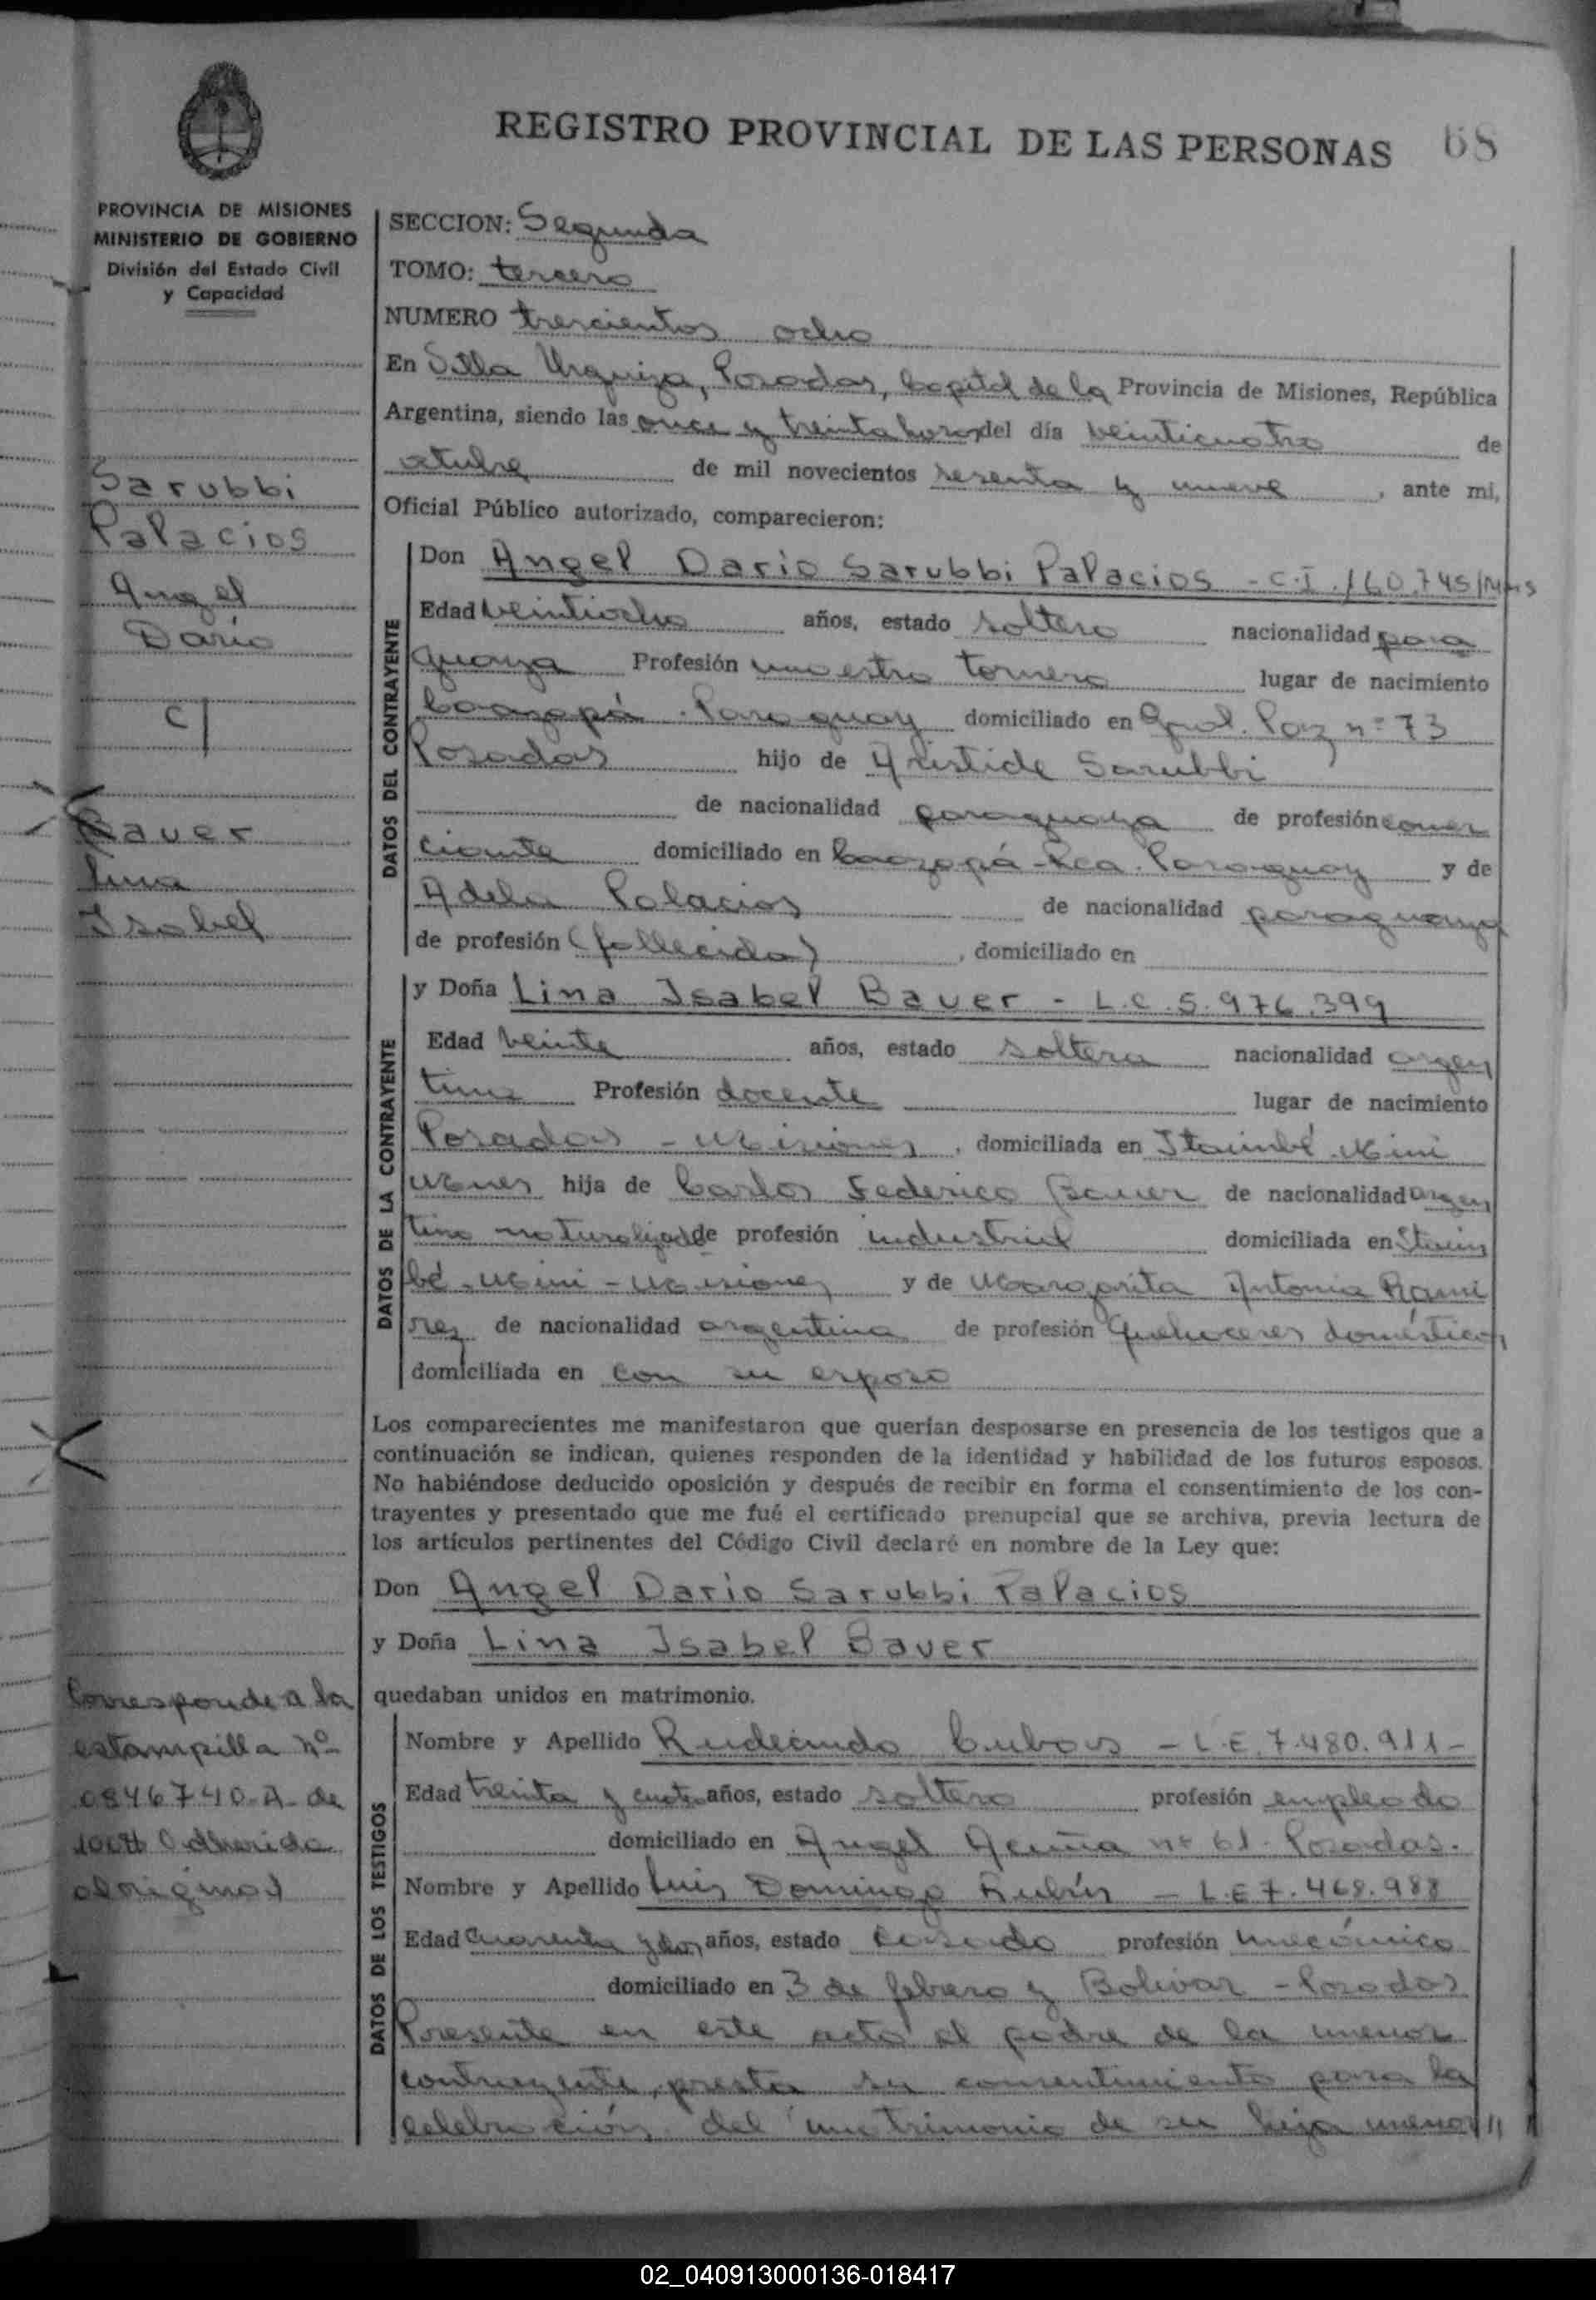 REGISTRO PROVINCIAL DE LAS PERSONAS 68
PROVINCIA DE MISIONES
MINISTERIO DE GOBIERNO
División del Estado Civil
y Capacidad
Sarubbi
Palacios
Angel
Dario
c/
Bauer
Lina
Isabel
Corresponde a la
estampilla nº
0846740-A- de
adherida
al original
SECCION: Segunda
TOMO: tercero
NUMERO trescientos ocho
En Villa Urquiza, Posadas, Capital de la Provincia de Misiones, República
Argentina, siendo las once y treinta horas del día veinticuatro de
octubre de mil novecientos sesenta y nueve, ante mí,
Oficial Público autorizado, comparecieron:
DATOS DEL CONTRAYENTE
Don Angel Dario Sarubbi Palacios - C.I. 160.745/Mnes
Edad veintiocho años, estado soltero nacionalidad para
guaya Profesión maestro tornero lugar de nacimiento
Caazapá - Paraguay domiciliado en Gral. Paz nº 73
Posadas hijo de Aristide Sarubbi
de nacionalidad paraguaya de profesión comer
ciante domiciliado en Caazapá - Rca. Paraguay y de
Adela Palacios de nacionalidad paraguaya
de profesión (fallecida), domiciliado en
DATOS DE LA CONTRAYENTE
y Doña Lina Isabel Bauer - L.C. 5.976.399
Edad veinte años, estado soltera nacionalidad argen
tina Profesión docente lugar de nacimiento
Posadas - Misiones, domiciliada en Itaimbé Miní
Mnes hija de Carlos Federico Bauer de nacionalidad argen
tino naturalizado de profesión industrial domiciliada en Itaim
bé - Miní - Misiones y de Margarita Antonia Rami
rez de nacionalidad argentina de profesión Quehaceres domésticos
domiciliada en con su esposo
Los comparecientes me manifestaron que querían desposarse en presencia de los testigos que a
continuación se indican, quienes responden de la identidad y habilidad de los futuros esposos.
No habiéndose deducido oposición y después de recibir en forma el consentimiento de los con-
trayentes y presentado que me fué el certificado prenupcial que se archiva, previa lectura de
los artículos pertinentes del Código Civil declaré en nombre de la Ley que:
Don Angel Dario Sarubbi Palacios
y Doña Lina Isabel Bauer
quedaban unidos en matrimonio.
DATOS DE LOS TESTIGOS
Nombre y Apellido Rudecindo Cubas - L.E. 7.480.911-
Edad treinta y cuatro años, estado soltero profesión empleado
domiciliado en Angel Acuña nº 61 - Posadas.
Nombre y Apellido Luis Domingo Rubín - L.E 7.468.988
Edad cuarenta y dos años, estado casado profesión mecánico
domiciliado en 3 de febrero y Bolivar - Posadas
Presente en este acto el padre de la menor
contrayente, presta su consentimiento para la
celebración del matrimonio de su hija menor//
02_040913000136-018417